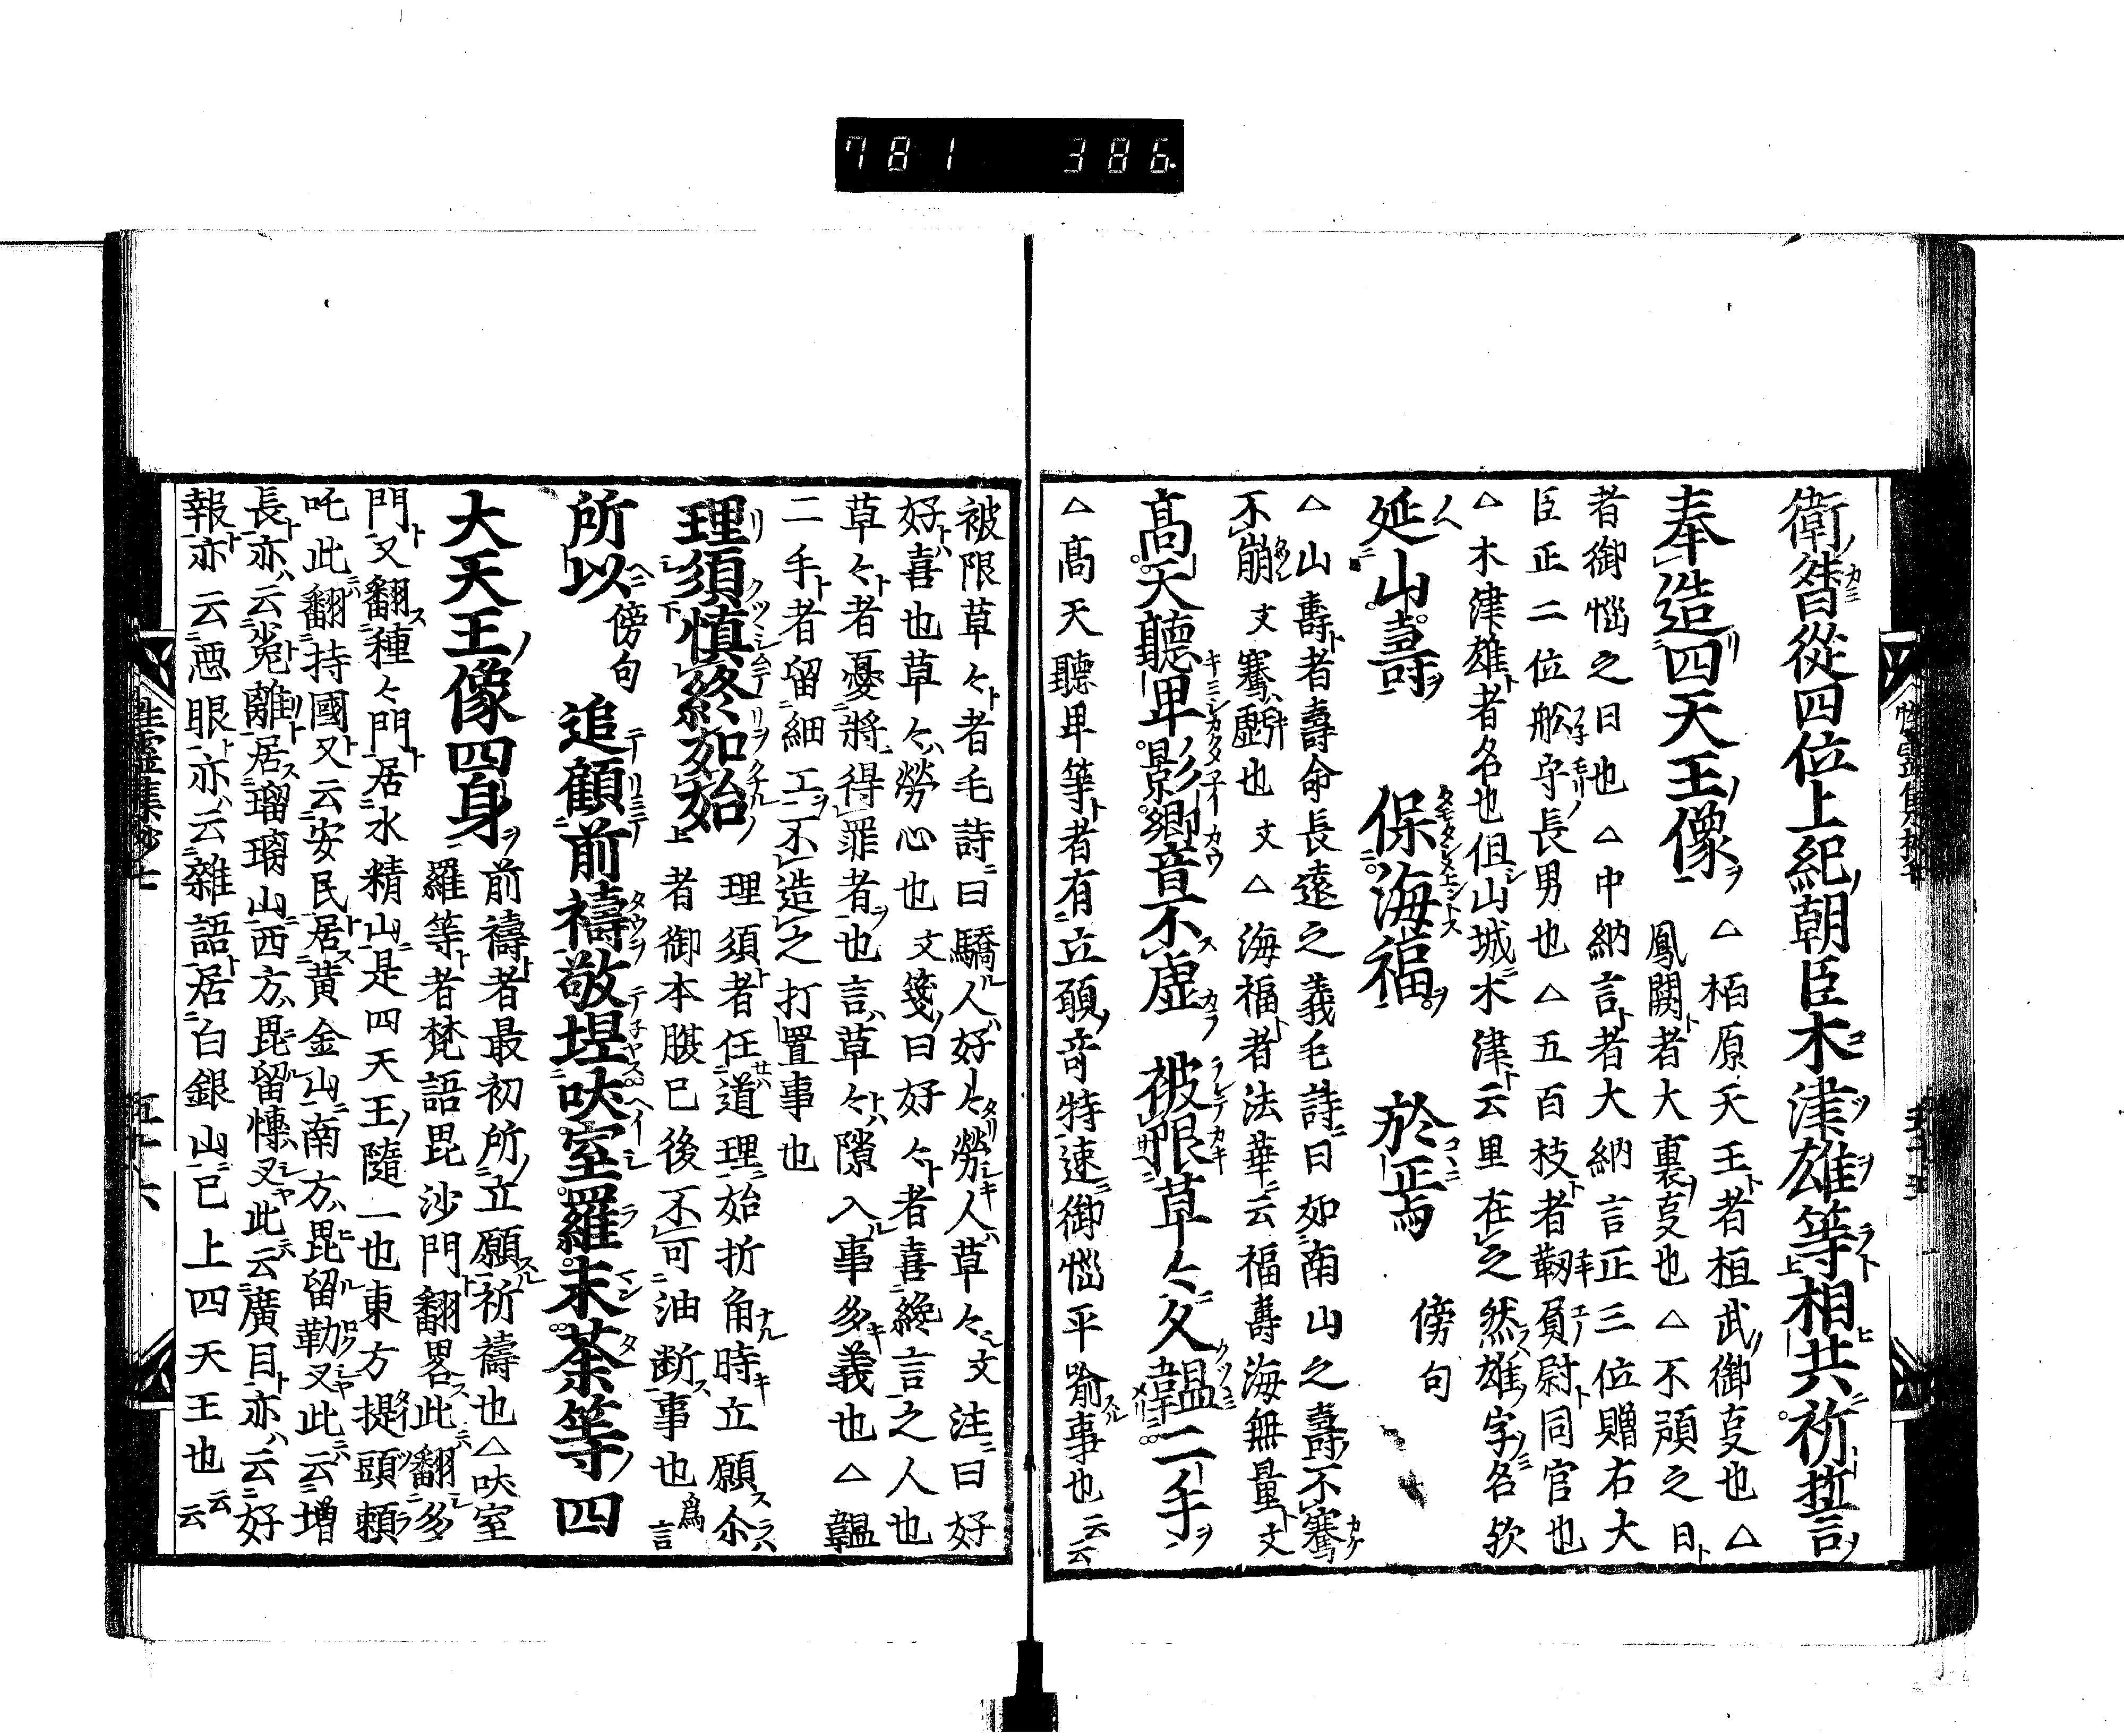 781 386
衛督從四位上紀朝臣木津雄等相共祈誓言
奉造四天王像 △栢原天王者桓武御亊也△
鳳闕者大裏亊也△不預之日
者御惱之日也△中納言者大納言正三位贈右大
臣正二位舩守長男也△五百枝者靱負尉同官也
△木津雄者名也但山城木津云里在之然雄字各欤
延山壽 保海福 於正焉 傍句
△山壽者壽命長遠之義毛詩曰如南山之壽不騫
不崩文騫虧也文△海福者法華云福壽海無量文
高天聽卑影響音不虛 被限草々久韞二手
△高天聽卑等者有立願奇特速御惱平喻事也云云
被限草々者毛詩曰驕人好々勞人草々文注曰好
好喜也草々勞心也文箋曰好々者喜絶言之人也
草々者憂將得罪者也言草々隙入事多義也△韞
二手者留細工不造之打置事也
理須慎終如始 理須者任道理始折角時立願尒
者御本腹已後不可油断事也 爲言
所以 傍句 追顧前禱敬埕吠室羅末荼等四
大天王像四身 前禱者最初所立願祈禱也△吠室
羅等者梵語毘沙門翻畧此翻多
門又翻種々門居水精山是四天王隨一也東方提頭頼
吒此翻持國又云安民居黄金山南方毘留勒叉此云増
長亦云 離居瑠璃山西方毘留愽叉此云廣目亦云好
報亦云惡眼亦云雜語居白銀山已上四天王也云云
性霊集鈔七 五十六